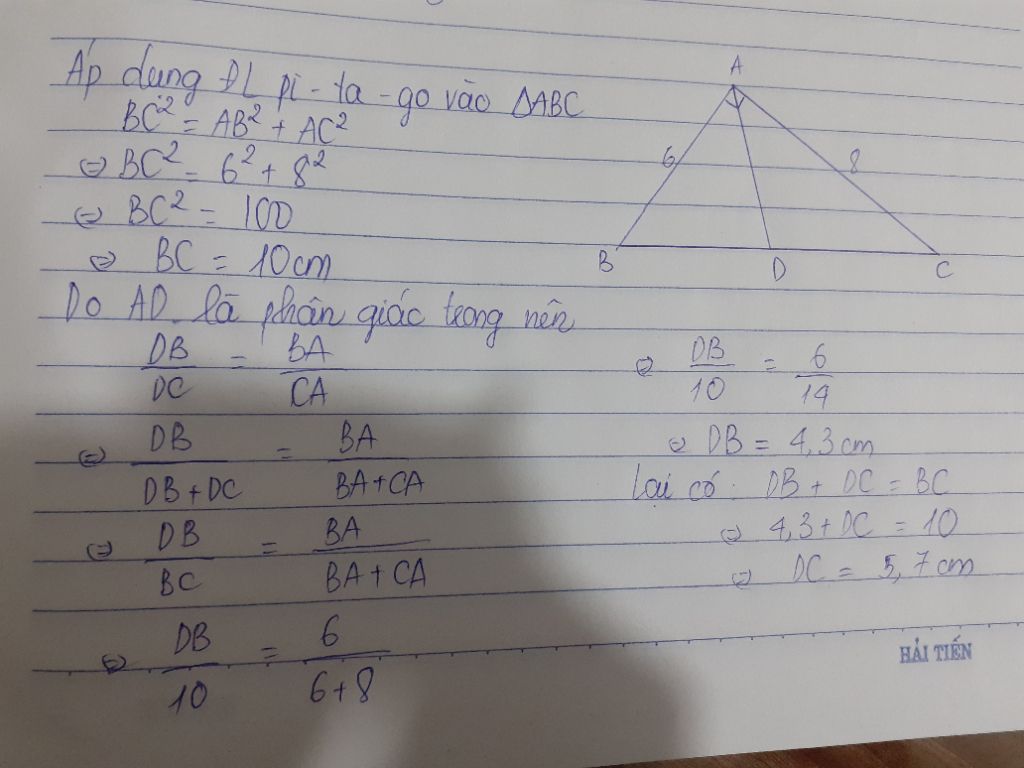 Áp dụng ĐL pi-ta-go vào ΔABC
BC² = AB² + AC²
⇔ BC² = 6² + 8²
⇔ BC² = 100
⇔ BC = 10cm
Do AD là phân giác trong nên
DB/DC = BA/CA
⇔ DB/(DB+DC) = BA/(BA+CA)
⇔ DB/BC = BA/(BA+CA)
⇔ DB/10 = 6/(6+8)
A
6
8
B
D
C
⇔ DB/10 = 6/14
⇔ DB = 4,3cm
Lại có: DB + DC = BC
⇔ 4,3 + DC = 10
⇔ DC = 5,7cm
HẢI TIẾN